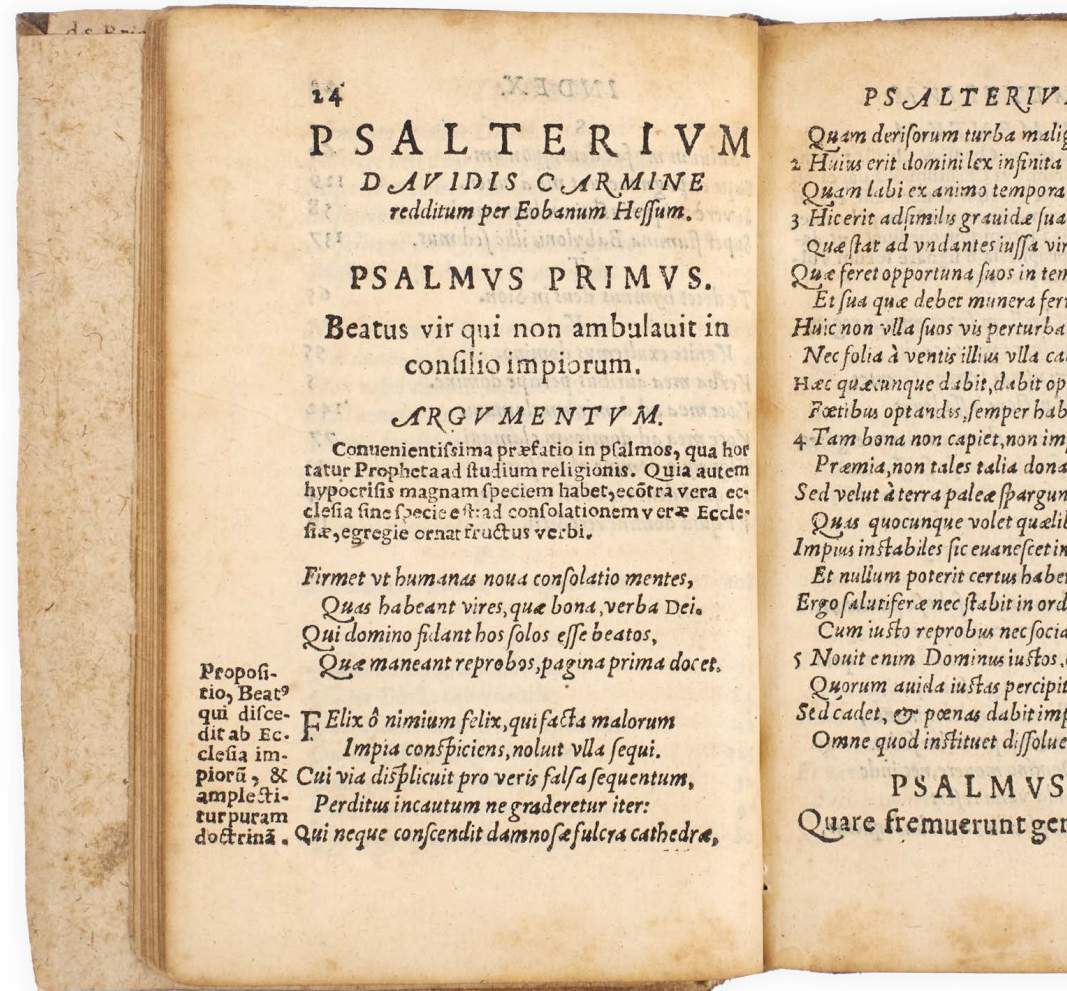 24
PSALTERIVM
DAVIDIS CARMINE
redditum per Eobanum Heſſum.
PSALMVS PRIMVS.
Beatus vir qui non ambulauit in
conſilio impiorum.
ARGVMENTVM.
Conuenientiſsima præfatio in pſalmos, qua hor
tatur Propheta ad ſtudium religionis. Quia autem
hypocriſis magnam ſpeciem habet, ecõtra vera ec-
cleſia ſine ſpecie eſt: ad conſolationem veræ Eccle-
ſiæ, egregie ornat fructus verbi.
Firmet vt humanas noua conſolatio mentes,
Quas habeant vires, quæ bona, verba Dei.
Qui domino fidant hos ſolos eſſe beatos,
Quæ maneant reprobos, pagina prima docet.
Propoſi-
tio, Beatꝰ
qui diſce-
dit ab Ec-
cleſia im-
piorũ, &
amplecti-
tur puram
doctrinã.
FElix ô nimium felix, qui facta malorum
Impia conſpiciens, noluit vlla ſequi.
Cui via diſplicuit pro veris falſa ſequentum,
Perditus incautum ne graderetur iter:
Qui neque conſcendit damnoſæ fulcra cathedræ,
PSALTERIV
Quam deriſorum turba malig
2 Huius erit domini lex infinita
Quam labi ex animo tempora
3 Hic erit adſimilis grauidæ ſua
Quæ ſtat ad vndantes iuſſa vir
Quæ feret opportuna ſuos in tem
Et ſua quæ debet munera fert
Huic non vlla ſuos vis perturba
Nec folia à ventis illius vlla ca
Hæc quæcunque dabit, dabit op
Fœtibus optandis, ſemper hab
4 Tam bona non capiet, non im
Præmia, non tales talia dona
Sed velut à terra paleæ ſpargun
Quas quocunque volet quælib
Impius inſtabiles ſic euaneſcet in
Et nullum poterit certus habe
Ergo ſalutiferæ nec ſtabit in ord
Cum iuſto reprobus nec ſocia
5 Nouit enim Dominus iuſtos,
Quorum auida iuſtas percipit
Sed cadet, & pœnas dabit imp
Omne quod inſtituet diſſolue
PSALMVS
Quare fremuerunt gen